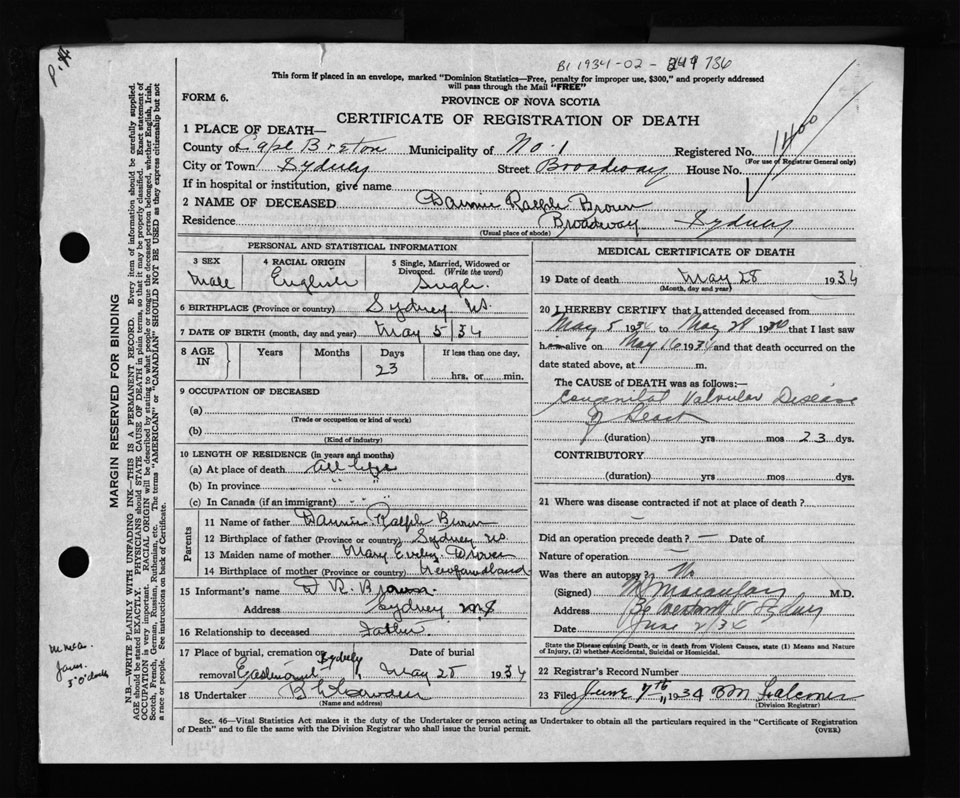 B1 1934-02- 736
This form if placed in an envelope, marked "Dominion Statistics—Free, penalty for improper use, $300," and properly addressed
will pass through the Mail "FREE"
FORM 6.
PROVINCE OF NOVA SCOTIA
CERTIFICATE OF REGISTRATION OF DEATH
1400
1 PLACE OF DEATH—
County of Cape Breton Municipality of No. 1 Registered No.
(For use of Registrar General only)
City or Town Sydney Street Broadway House No.
If in hospital or institution, give name
2 NAME OF DECEASED Dannie Ralph Brown
Residence Broadway Sydney
(Usual place of abode)
PERSONAL AND STATISTICAL INFORMATION
3 SEX
Male
4 RACIAL ORIGIN
English
5 Single, Married, Widowed or
Divorced. (Write the word)
Single.
6 BIRTHPLACE (Province or country) Sydney NS.
7 DATE OF BIRTH (month, day and year) May 5/34
8 AGE IN Years Months Days 23 If less than one day,
hrs. or min.
9 OCCUPATION OF DECEASED
(a)
(Trade or occupation or kind of work)
(b)
(Kind of industry)
10 LENGTH OF RESIDENCE (in years and months)
(a) At place of death all life
(b) In province " "
(c) In Canada (if an immigrant) - " - "
Parents
11 Name of father Dannie Ralph Brown
12 Birthplace of father (Province or country) Sydney NS
13 Maiden name of mother Mary
14 Birthplace of mother (Province or country) Newfoundland
15 Informant's name D R. Brown
Address Sydney N.S
16 Relationship to deceased Father
17 Place of burial, cremation or removal Eastmount Sydney Date of burial May 28 1934
18 Undertaker
(Name and address)
MEDICAL CERTIFICATE OF DEATH
19 Date of death May 28 1934
(Month, day and year)
20 I HEREBY CERTIFY that I attended deceased from
May 5 1934 to May 28 1930 that I last saw
h alive on May 16 1934 and that death occurred on the
date stated above, at m.
The CAUSE of DEATH was as follows:—
Congenital Valvular Disease
of Heart
(duration) yrs mos 23 dys.
CONTRIBUTORY
(duration) yrs mos dys.
21 Where was disease contracted if not at place of death?
—
Did an operation precede death? — Date of
Nature of operation —
Was there an autopsy? No
(Signed) M.D.
Address Sydney
Date June 2/34
State the Disease causing Death, or in death from Violent Causes, state (1) Means and Nature
of Injury, (2) whether Accidental, Suicidal or Homicidal.
22 Registrar's Record Number
23 Filed June 7th 1934 Falconer
(Division Registrar)
Sec. 46—Vital Statistics Act makes it the duty of the Undertaker or person acting as Undertaker to obtain all the particulars required in the "Certificate of Registration
of Death" and to file the same with the Division Registrar who shall issue the burial permit.
(OVER)
MARGIN RESERVED FOR BINDING
N.B.—WRITE PLAINLY WITH UNFADING INK—THIS IS A PERMANENT RECORD. Every item of information should be carefully supplied.
AGE should be stated EXACTLY. PHYSICIANS should STATE CAUSE OF DEATH in plain terms, so that it may be properly classified. Exact statement of
OCCUPATION is very important. RACIAL ORIGIN will be described by stating to what people or tongue the deceased person belonged, whether English, Irish,
Scotch, French, German, Russian, Ruthenian, etc. The terms "AMERICAN" or "CANADIAN" SHOULD NOT BE USED as they express citizenship but not
a race or people. See instructions on back of Certificate.